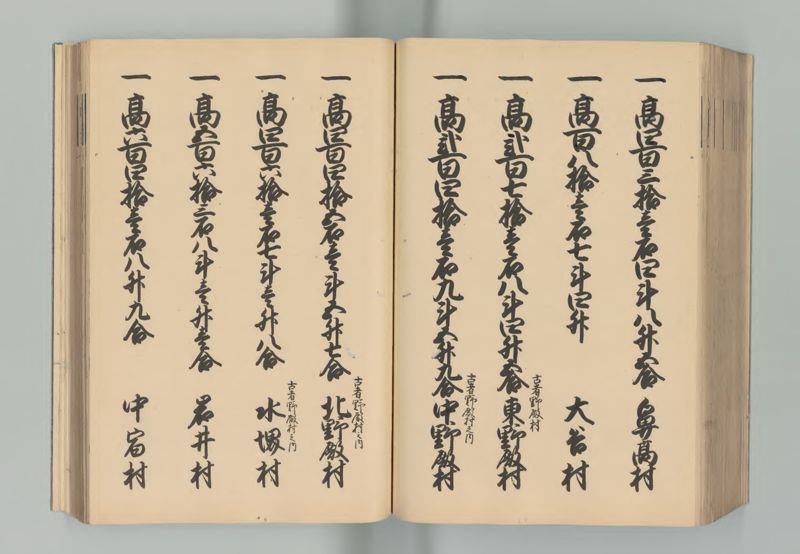 一 高四百三拾壱石四斗八升五合 鼻高村
一 高百八拾壱石七斗四升 大谷村
古者野殿村
一 高弐百七拾壱石八斗四升五合 東野殿村
古者野殿村之内
一 高弐百四拾壱石九斗五升九合 中野殿村
古者野殿村之内
一 高四百四拾五石壱斗五升七合 北野殿村
古者野殿村之内
一 高四百六拾壱石七斗壱升八合 水堺村
一 高五百六拾三石八斗壱升壱合 岩井村
一 高六百四拾壱石八升九合 中宿村